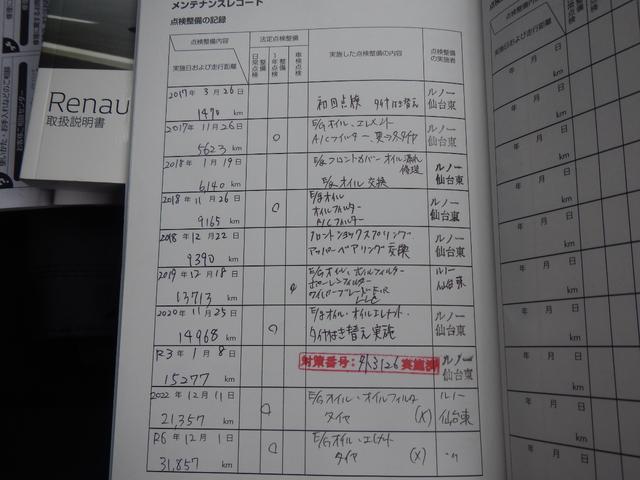 メンテナンスレコート
点検整備の記録
点検整備内容
実施日および走行距離
法定点検整備
日常点検
1年点検
整備
車検点検
整備
実施した点検整備の内容
点検整備
の実施者
2017年 3月26日
1470 km
初回点検 タイヤはき替え
ルノー
仙台東
2017年 11月26日
5623 km
E/Gオイル、エレメント
A/Cフィルター、
ルノー
仙台東
2018年 1月19日
6,140 km
E/G フロントカバー オイル漏れ
修理
E/G オイル 交換
ルノー
仙台東
2018年 11月26日
9165 km
E/gオイル
オイルフィルター
A/Cフィルター
ルノー
仙台東
2018年 12月22日
9390 km
フロントショックスプリング
アッパーベアリング交換
ルノー
仙台東
2019年 12月18日
13713 km
E/Gオイル、オイルフィルター
ポーレンフィルター
ワイパーブレードF,R
LLC
ルノー
仙台東
2020年 11月25日
14968 km
E/gオイル・オイルエレメント・
タイヤはき替え実施
ルノー
仙台東
R3年 1月 8日
15277 km
対策番号: 実施済
ルノー
仙台東
2022年 12月11日
21,357 km
E/Gオイル・オイルフィルタ
タイヤ (X)
ルノー
仙台東
R6年 12月 1日
31,857 km
E/Gオイル・エレメント
タイヤ (X)
Renau
取扱説明書
点検整備内容
実施日および走行距離
年 月 日
km
年 月 日
km
年 月 日
km
年 月 日
km
年 月 日
km
年 月 日
km
年 月 日
km
年 月 日
km
年 月 日
km
年 月 日
km